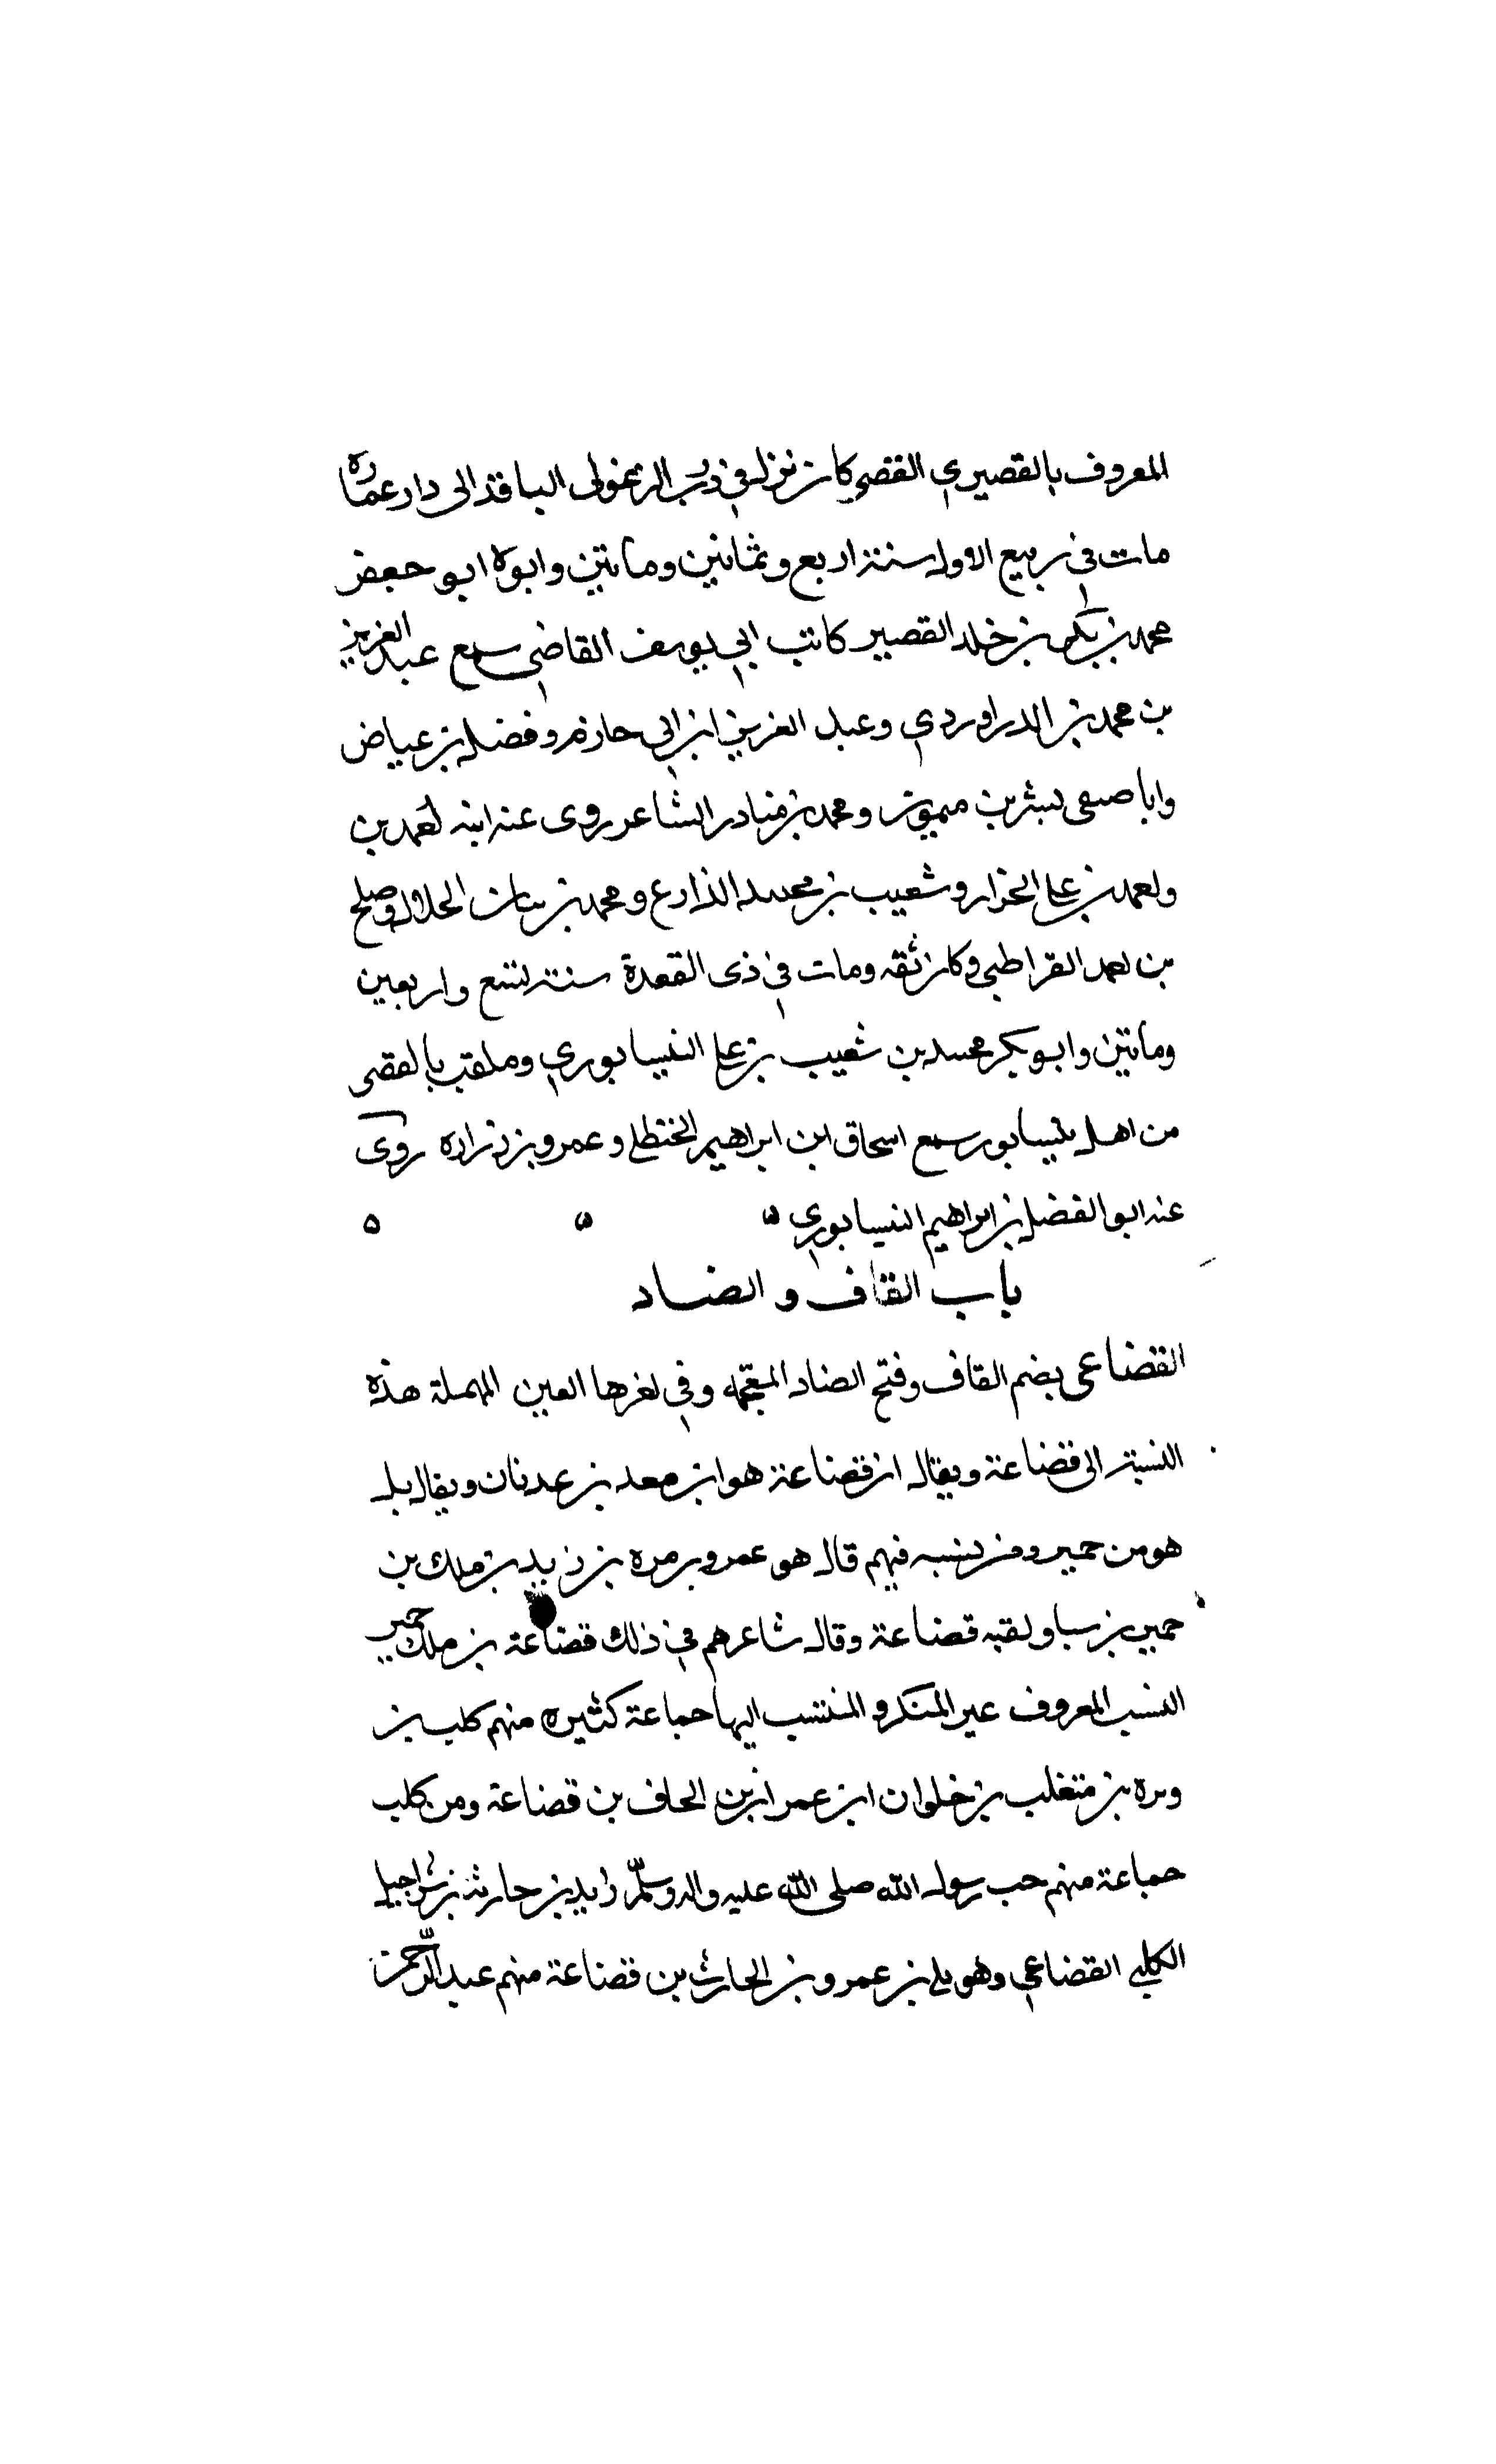 المعروف بالقصيري القصي كان ينزل في درب الريحولى النافذ الى دار عماره
مات في ربيع الاول سنة اربع وثمانين ومائتين وابوه ابو جعفر
محمد بن بكر بن خلد القصير كاتب ابي يوسف القاضي سمع عبد العزيز
بن محمد بن الدراوردي وعبد العزيز ابن ابي حازم وفضل بن عياض
وابا صفى بشر بن ميمون ومحمد بن مناذر الشاعر روى عنه ابنه احمد بن
واحمد بن علي الخزار وشعيب بن محمد الذارع ومحمد بن الخلال وصلح
بن احمد القراطى وكان ثقه ومات في ذى القعدة سنة تسع واربعين
ومائتين وابو بكر محمد بن شعيب بن علي النيسابوري وملقب بالقصى
من اهل نيسابور سمع اسحاق ابن ابراهيم الحنظلي وعمرو بن زراره روى
عنه ابو الفضل بن ابراهيم النيسابوري ۵ ۵ ۵
باب القاف والضاد
القضاعى بضم القاف وفتح الضاد المعجمه وفي اخرها العين المهملة هذه
النسبة الى قضاعة ويقال ان قضاعة هو ابن معد بن عدنان ويقال بل
هو من حمير ومن نسبه فيهم قال هو عمرو بن مره بن زيد بن ملك بن
حمير بن سبا ولقبه قضاعة وقال شاعرهم في ذلك قضاعة بن ملك حمير
النسب المعروف غير المنكر و المنتسب اليها جماعة كثيره منهم كلب بن
وبره بن متغلب بن حلوان ابن عمران بن الحاف بن قضاعة ومن كلب
جماعة منهم حب رسول الله صلى الله عليه واله وسلم زيد بن حارثة بن شراحيل
الكلبي القضاعي وهو بلي بن عمرو بن الحارث بن قضاعة منهم عبد الرحمن